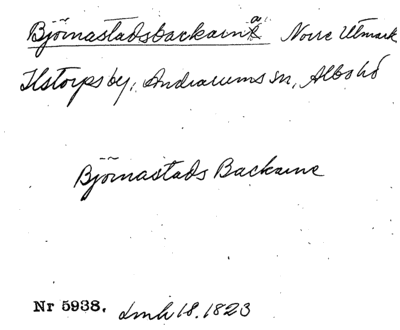 Björnastadsbackarna Norre Utmark
Ilstorps by, Andrarums sn, Albo hd
Björnastads Backarne
Nr 5938. Lmh 18. 1823